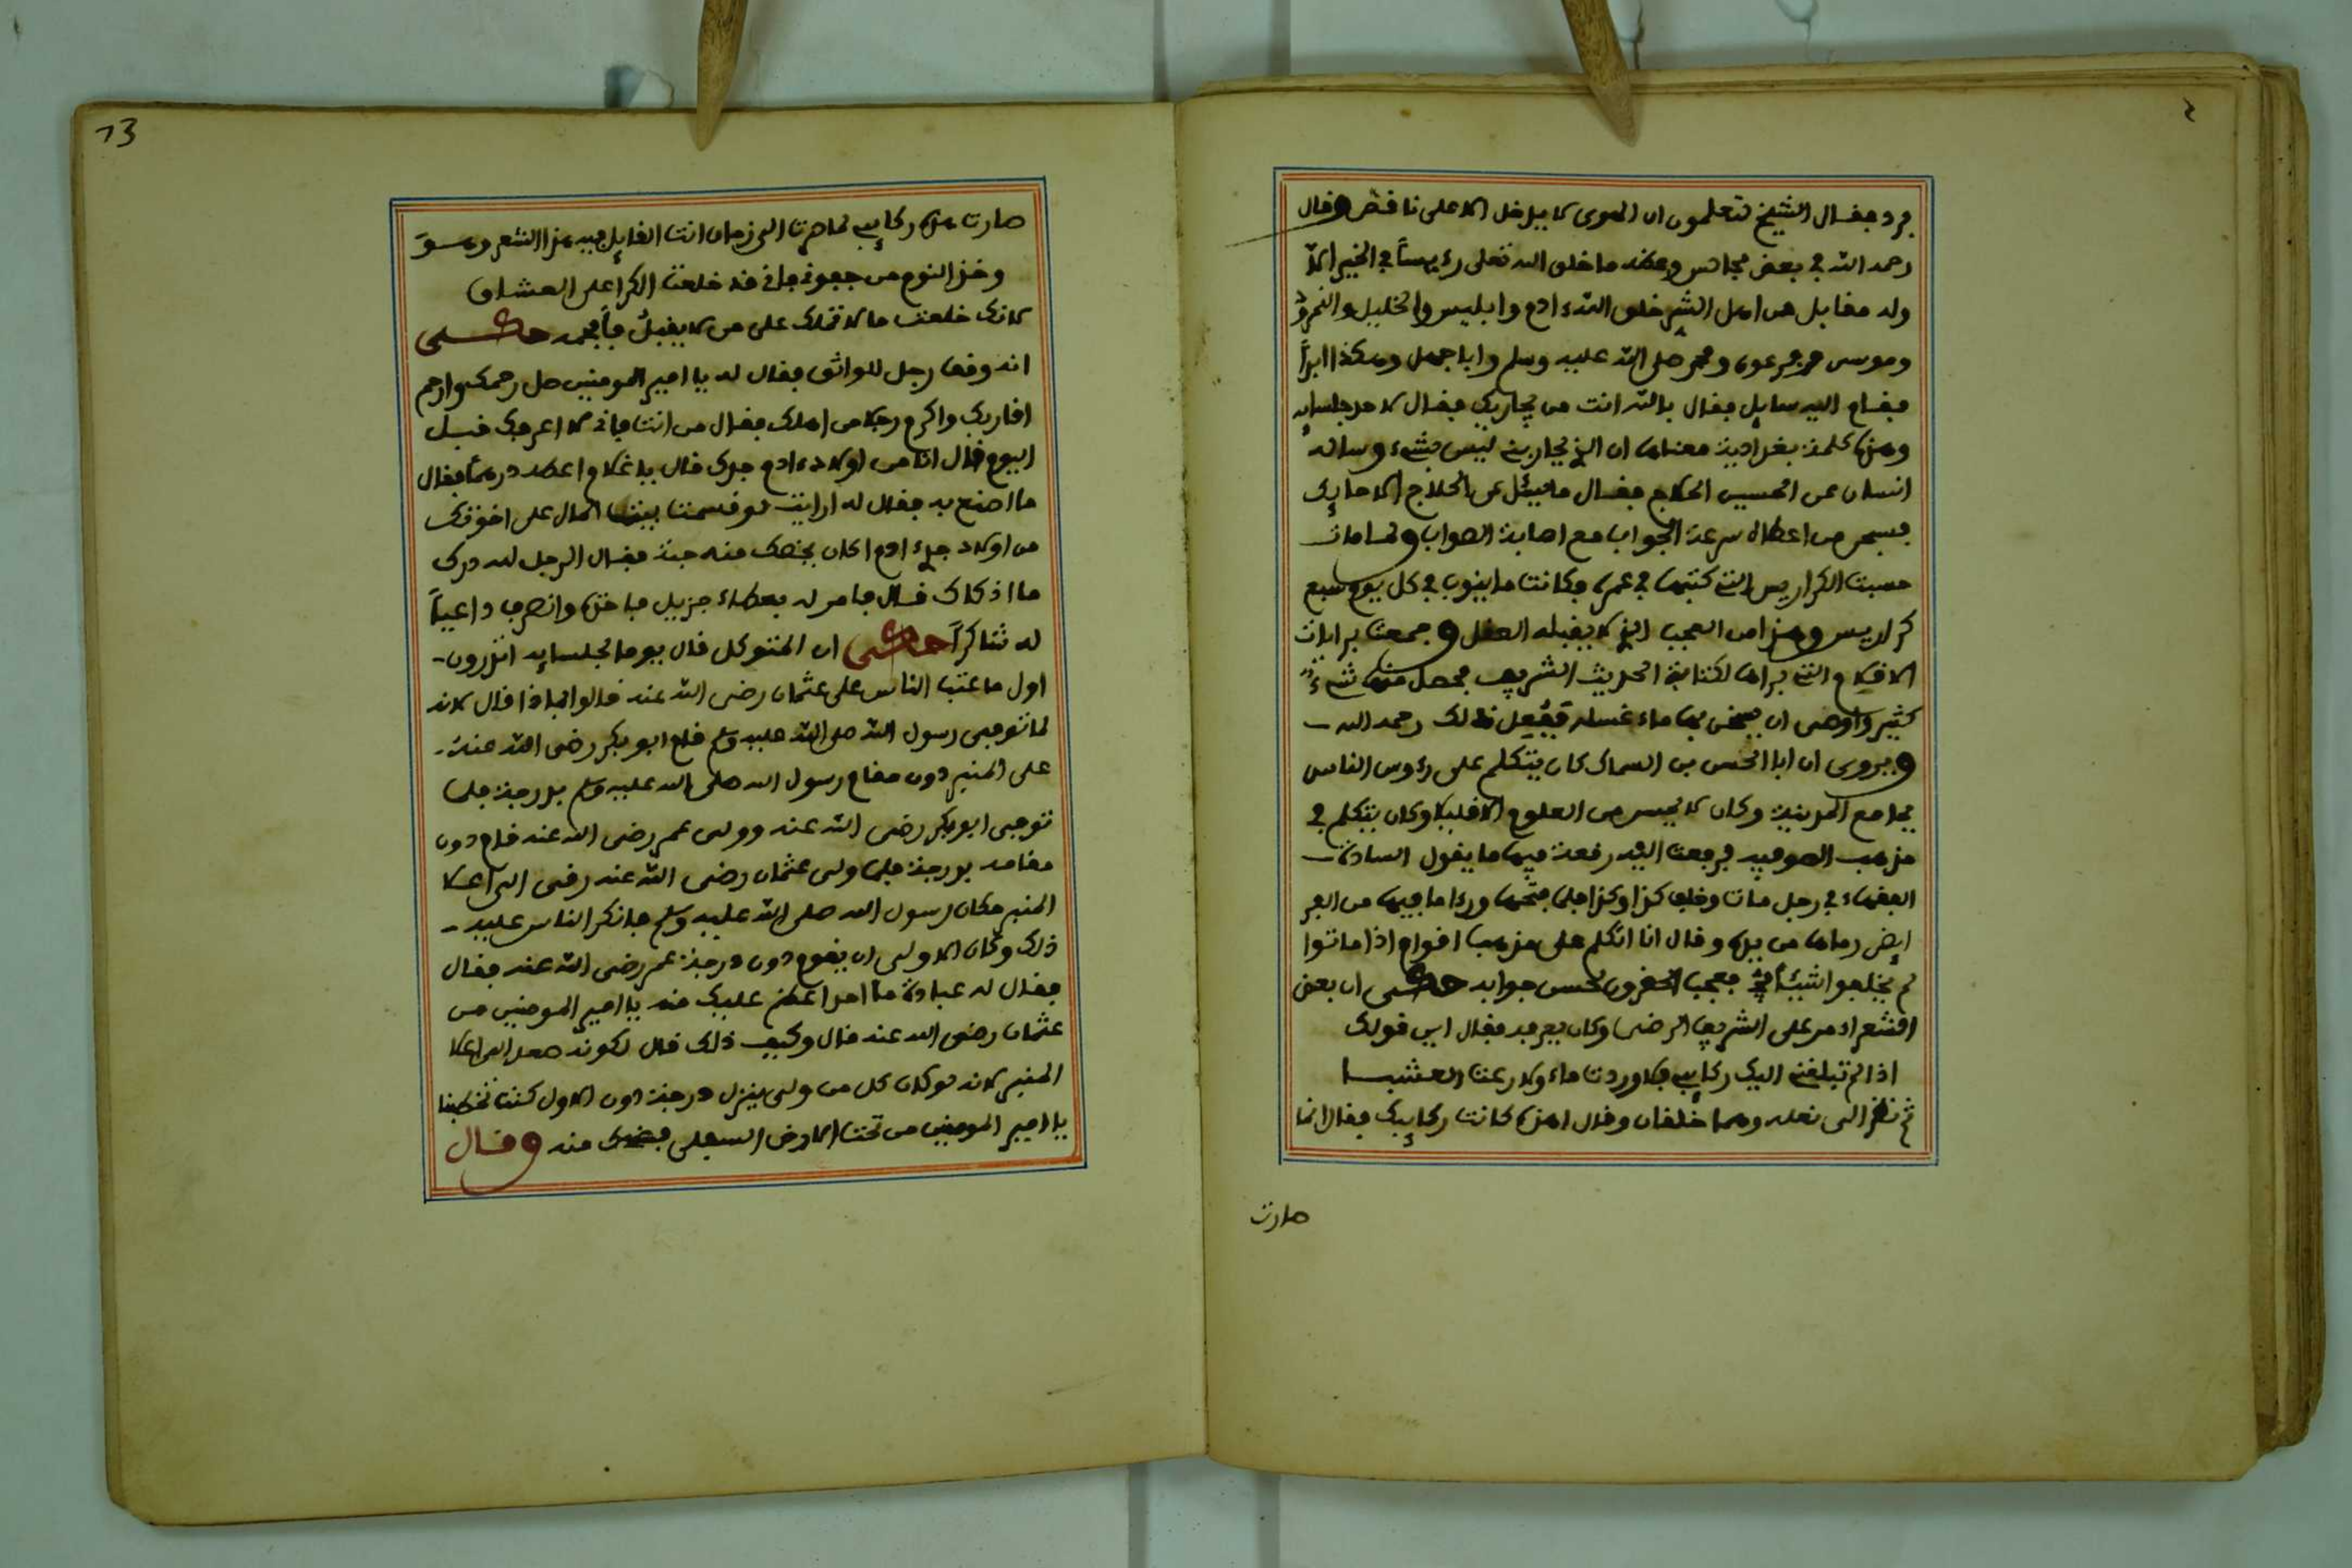 ٤
فرد فقال الشيخ لتعلمون ان الهوى لا يدخل الا على ناقص وقال
رحمه الله في بعض مجالس وعظه ما خلق الله تعلى رءيسا في الخير الا
وله مقابل من اهل الشر خلق الله ءادم وابليس والخليل والنمرود
وموسى وفرعون ومحمد صلى الله عليه وسلم وابا جهل وهكذا ابدا
فقام اليه سايل فقال بالله انت من يحاربك فقال لاحد جلسايه
وهذه كلمة بغدادية معناها ان الذي يحاربني ليس بشيء وساله
انسان عن الحسين الحلاج فقال ما يسئل عن الحلاج الا حايك
فسبحن من اعطاه سرعة الجواب مع اصابة الصواب ولما مات
حسبت الكراريس التي كتبها في عمره فكانت ما ينوب في كل يوم سبع
كراريس وهذا من العجب الذي لا يقبله العقل وجمعت برايات
الاقلام التي براها لكتابة الحديث الشريف فحصل منها شيء
كثير واوصى ان يسخن بها ماء غسله ففعل ذلك رحمه الله
ويروى ان ابا الحسن بن السماك كان يتكلم على رءوس الناس
بجامع المدينة وكان لا يحسن من العلوم الا قليلا وكان يتكلم في
مذهب الصوفيه فرفعت اليه رقعة فيها ما يقول السادة
الفقهاء في رجل مات وخلف كذا وكذا فلما فتحها ورءا ما فيها من الفر
ايض رماها من يده وقال انا اتكلم على مذهب اقوام اذا ماتوا
لم يخلفوا شيئا فعجب الحضرون لحسن جوابه حكى ان بعض
الشعرا دمر على الشريف الرضى وكان يعرفه فقال اين قولك
اذا لم تبلغني اليك ركايبي فلا وردت ماء ولا رعت العشبا
ثم نظر الى نعله وهما خلقان وقال اهذه كانت ركايبك فقال انما
صارت
13
صارت هذه ركايبي لما صرنا الى زمان انت القايل فيه هذا الشعر وهو
وخذ النوم من جفوني فاني قد خلعت الكرا على العشاق
لانك خلعت ما لا تملك على من لا يقبل فافحمه حكى
انه وقف رجل للواثق فقال له يا امير المومنين صل رحمك وارحم
اقاربك واكرم رجلا من اهلك فقال من انت فاني لا اعرفك قبل
اليوم قال انا من اولاد ءادم جدك قال يا غلام اعطه درهما فقال
ما اصنع به فقال له ارايت لو قسمت بيت المال على اخوتك
من اولاد جدي ءادم اكان يخصك منه حبة فقال الرجل لله درك
ما اذكاك قال فامر له بعطاء جزيل فاخذه وانصرف داعيا
له شاكرا حكى ان المتوكل قال يوما لجلسايه اتدرون
اول ما عتب الناس على عثمان رضى الله عنه قالوا لماذا قال لانه
لما توفى رسول الله صلى الله عليه وسلم قام ابو بكر رضى الله عنه
على المنبر دون مقام رسول الله صلى الله عليه وسلم بدرجة فلما
توفى ابو بكر رضى الله عنه وولى عمر رضى الله عنه قام دون
مقامه بدرجة فلما ولى عثمان رضى الله عنه رقى الى اعلا
المنبر مكان رسول الله صلى الله عليه وسلم فانكر الناس عليه
ذلك وكان الاولى ان يقوم دون درجة عمر رضى الله عنه فقال
فقال له عبادة ما احد اعظم عليك منه يا امير المومنين من
عثمان رضى الله عنه قال وكيف ذلك قال لكونه صعد الى اعلا
المنبر لانه لو كان كل من ولى ينزل درجة دون الاول كنت تخطبنا
يا امير المومنين من تحت الارض السفلى فضحك منه وقال